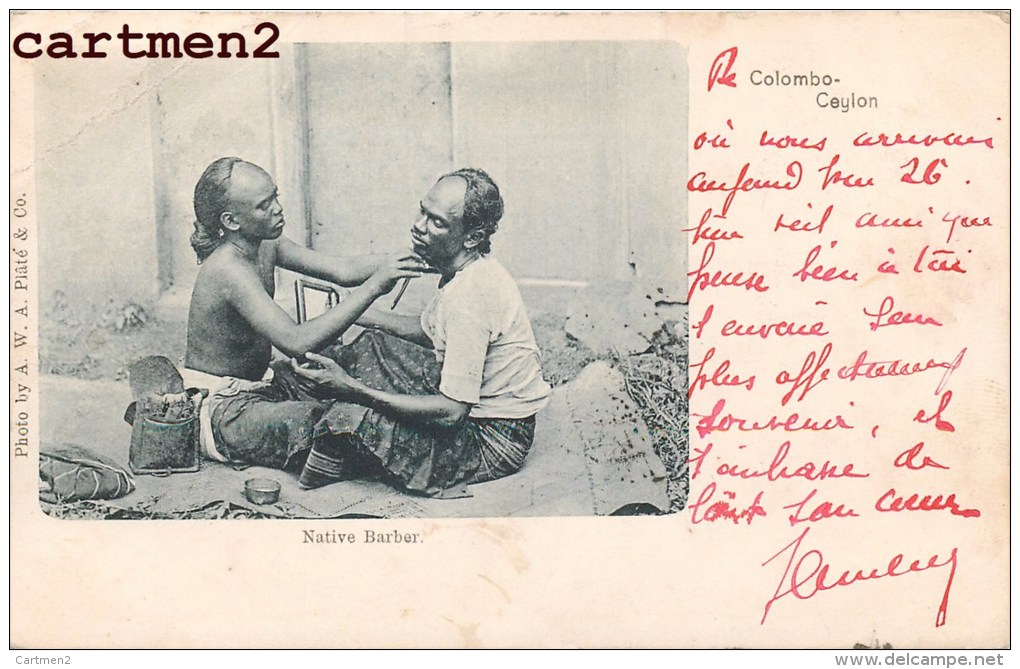 cartmen2
Photo by A. W. A. Plâté & Co.
De Colombo-
Ceylon
où nous arrivons
aujourd'hui 26.
Une vieil ami que
pense bien à toi
t'envoie son
plus affectueux
souvenir, et
t'embrasse de
tout son cœur
Native Barber.
Cartmen2
www.delcampe.net